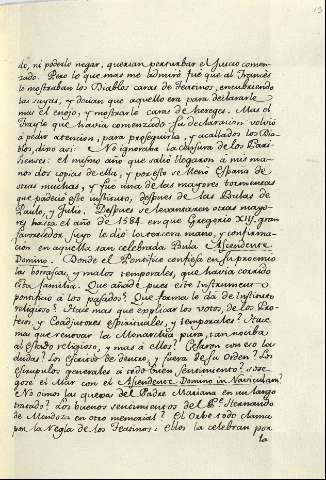 13
do, ni poderlo negar, querian perturbar el Juicio comen-
zado. Pero lo que mas me admiró fue que al Francés
le mostraban los Diablos caras de Teatinos, encubriendo
las suyas, y decian que aquello era para declararle
mas el enojo, y mostrarle caras de hereges. Mas el
Frayle que havia comenzado su declaracion volvió
à pedir atencion, para proseguirla, y acallados los Dia-
blos, dixo asi: No ignoraba la censura de los Pari-
sienses: El mismo año que salió llegaron à mis ma-
nos dos copias de ella, y por esto se llenó España de
otras muchas, y fue una de las mayores tormentas
que padeció este instituto, despues de las Bulas de
Paulo, y Julio. Despues se levantaron otras mayo-
res hasta el año de 1584. en que Gregorio XIII. gran
favorecedor suyo le dió la tercera mano, y confirma-
cion en aquella tan celebrada Bula Ascendente
Domino. Donde el Pontifice confiesa en su proemio
las borrascas, y malos temporales, que havia corrido
esta familia. Que añade pues este Instrumento
pontificio à los pasados? Que forma le da de Instituto
religioso? Hace mas que explicar los votos, de los Pro-
fesos, y Coadjutores espirituales, y temporales? Hace
mas que renovar la Monarchia pura, tan nociba
al estado religioso, y mas à ellos? Cesaron con eso las
dudas? Los escritos de dentro, y fuera de su Orden? Los
escrupulos generales à todo buen sentimiento? Sose-
góse el Mar con el Ascendente Domino in Naviculam?
No oimos las quexas del Padre Mariana en un largo
tratado? Los buenos sentimientos del Pe. Hernando
de Mendoza en otro memorial? El Orbe todo clama
por la Regla de los Teatinos: ellos la celebran por
la